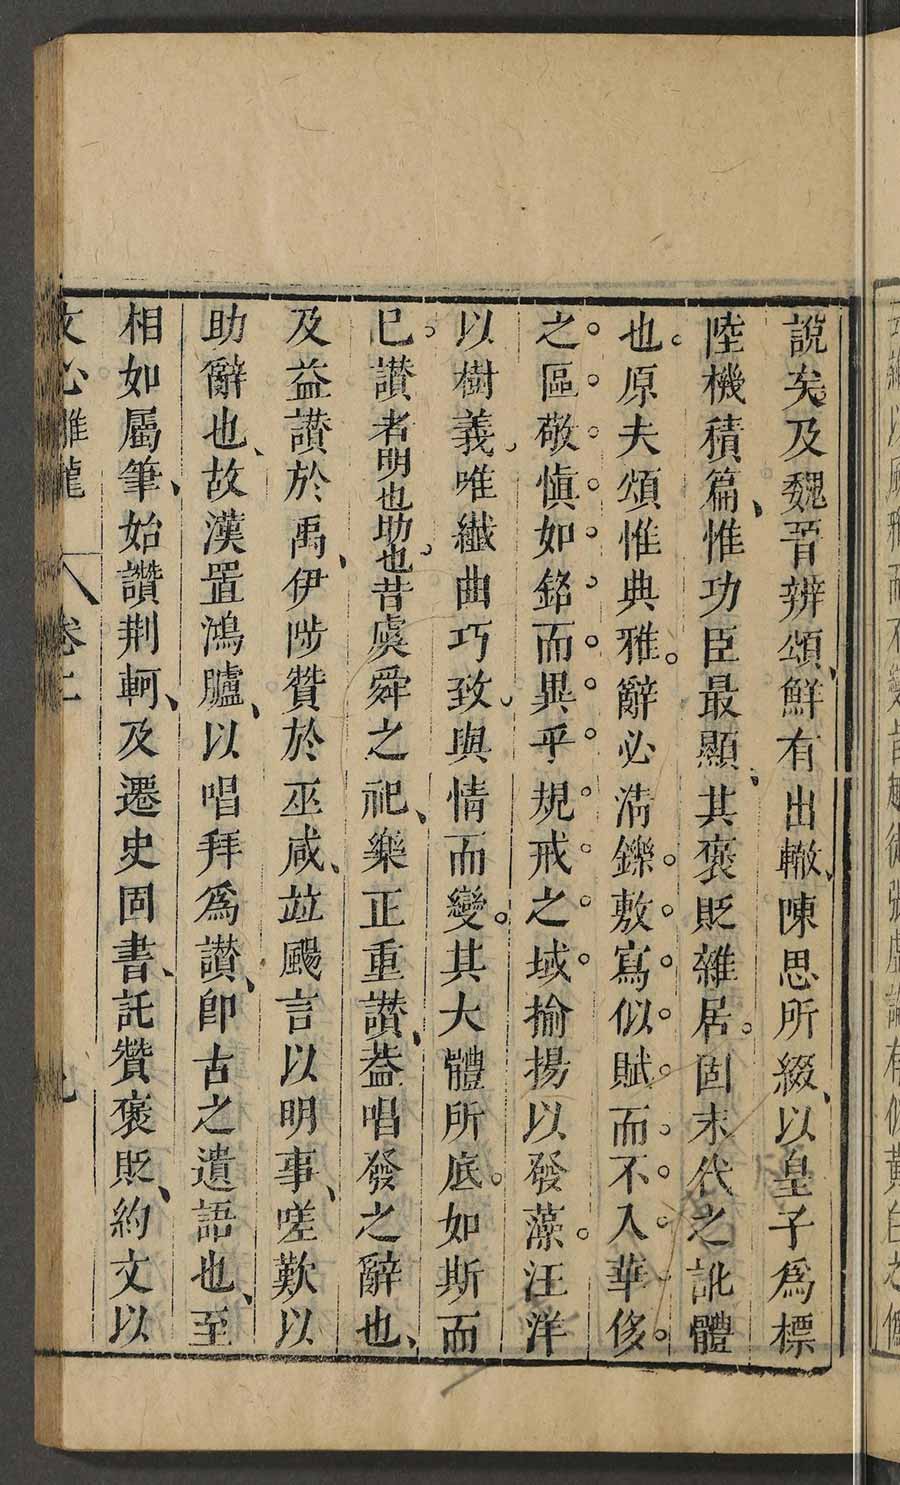 說矣及魏晉辨頌鮮有出轍陳思所綴以皇子爲標
陸機積篇惟功臣最顯其褒貶雜居固末代之訛體
也原夫頌惟典雅辭必淸鑠敷寫似賦而不入華侈
之區敬愼如銘而異乎規戒之域揄揚以發藻汪洋
以樹義唯纖曲巧致與情而變其大體所底如斯而
巳讚者明也助也昔虞舜之祀樂正重讚葢唱發之辭也
及益讚於禹伊陟贊於巫咸竝颺言以明事嗟歎以
助辭也故漢置鴻臚以唱拜爲讚卽古之遺語也至
相如屬筆始讚荆軻及遷史固書託贊褒貶約文以
文心雕龍 卷二 九